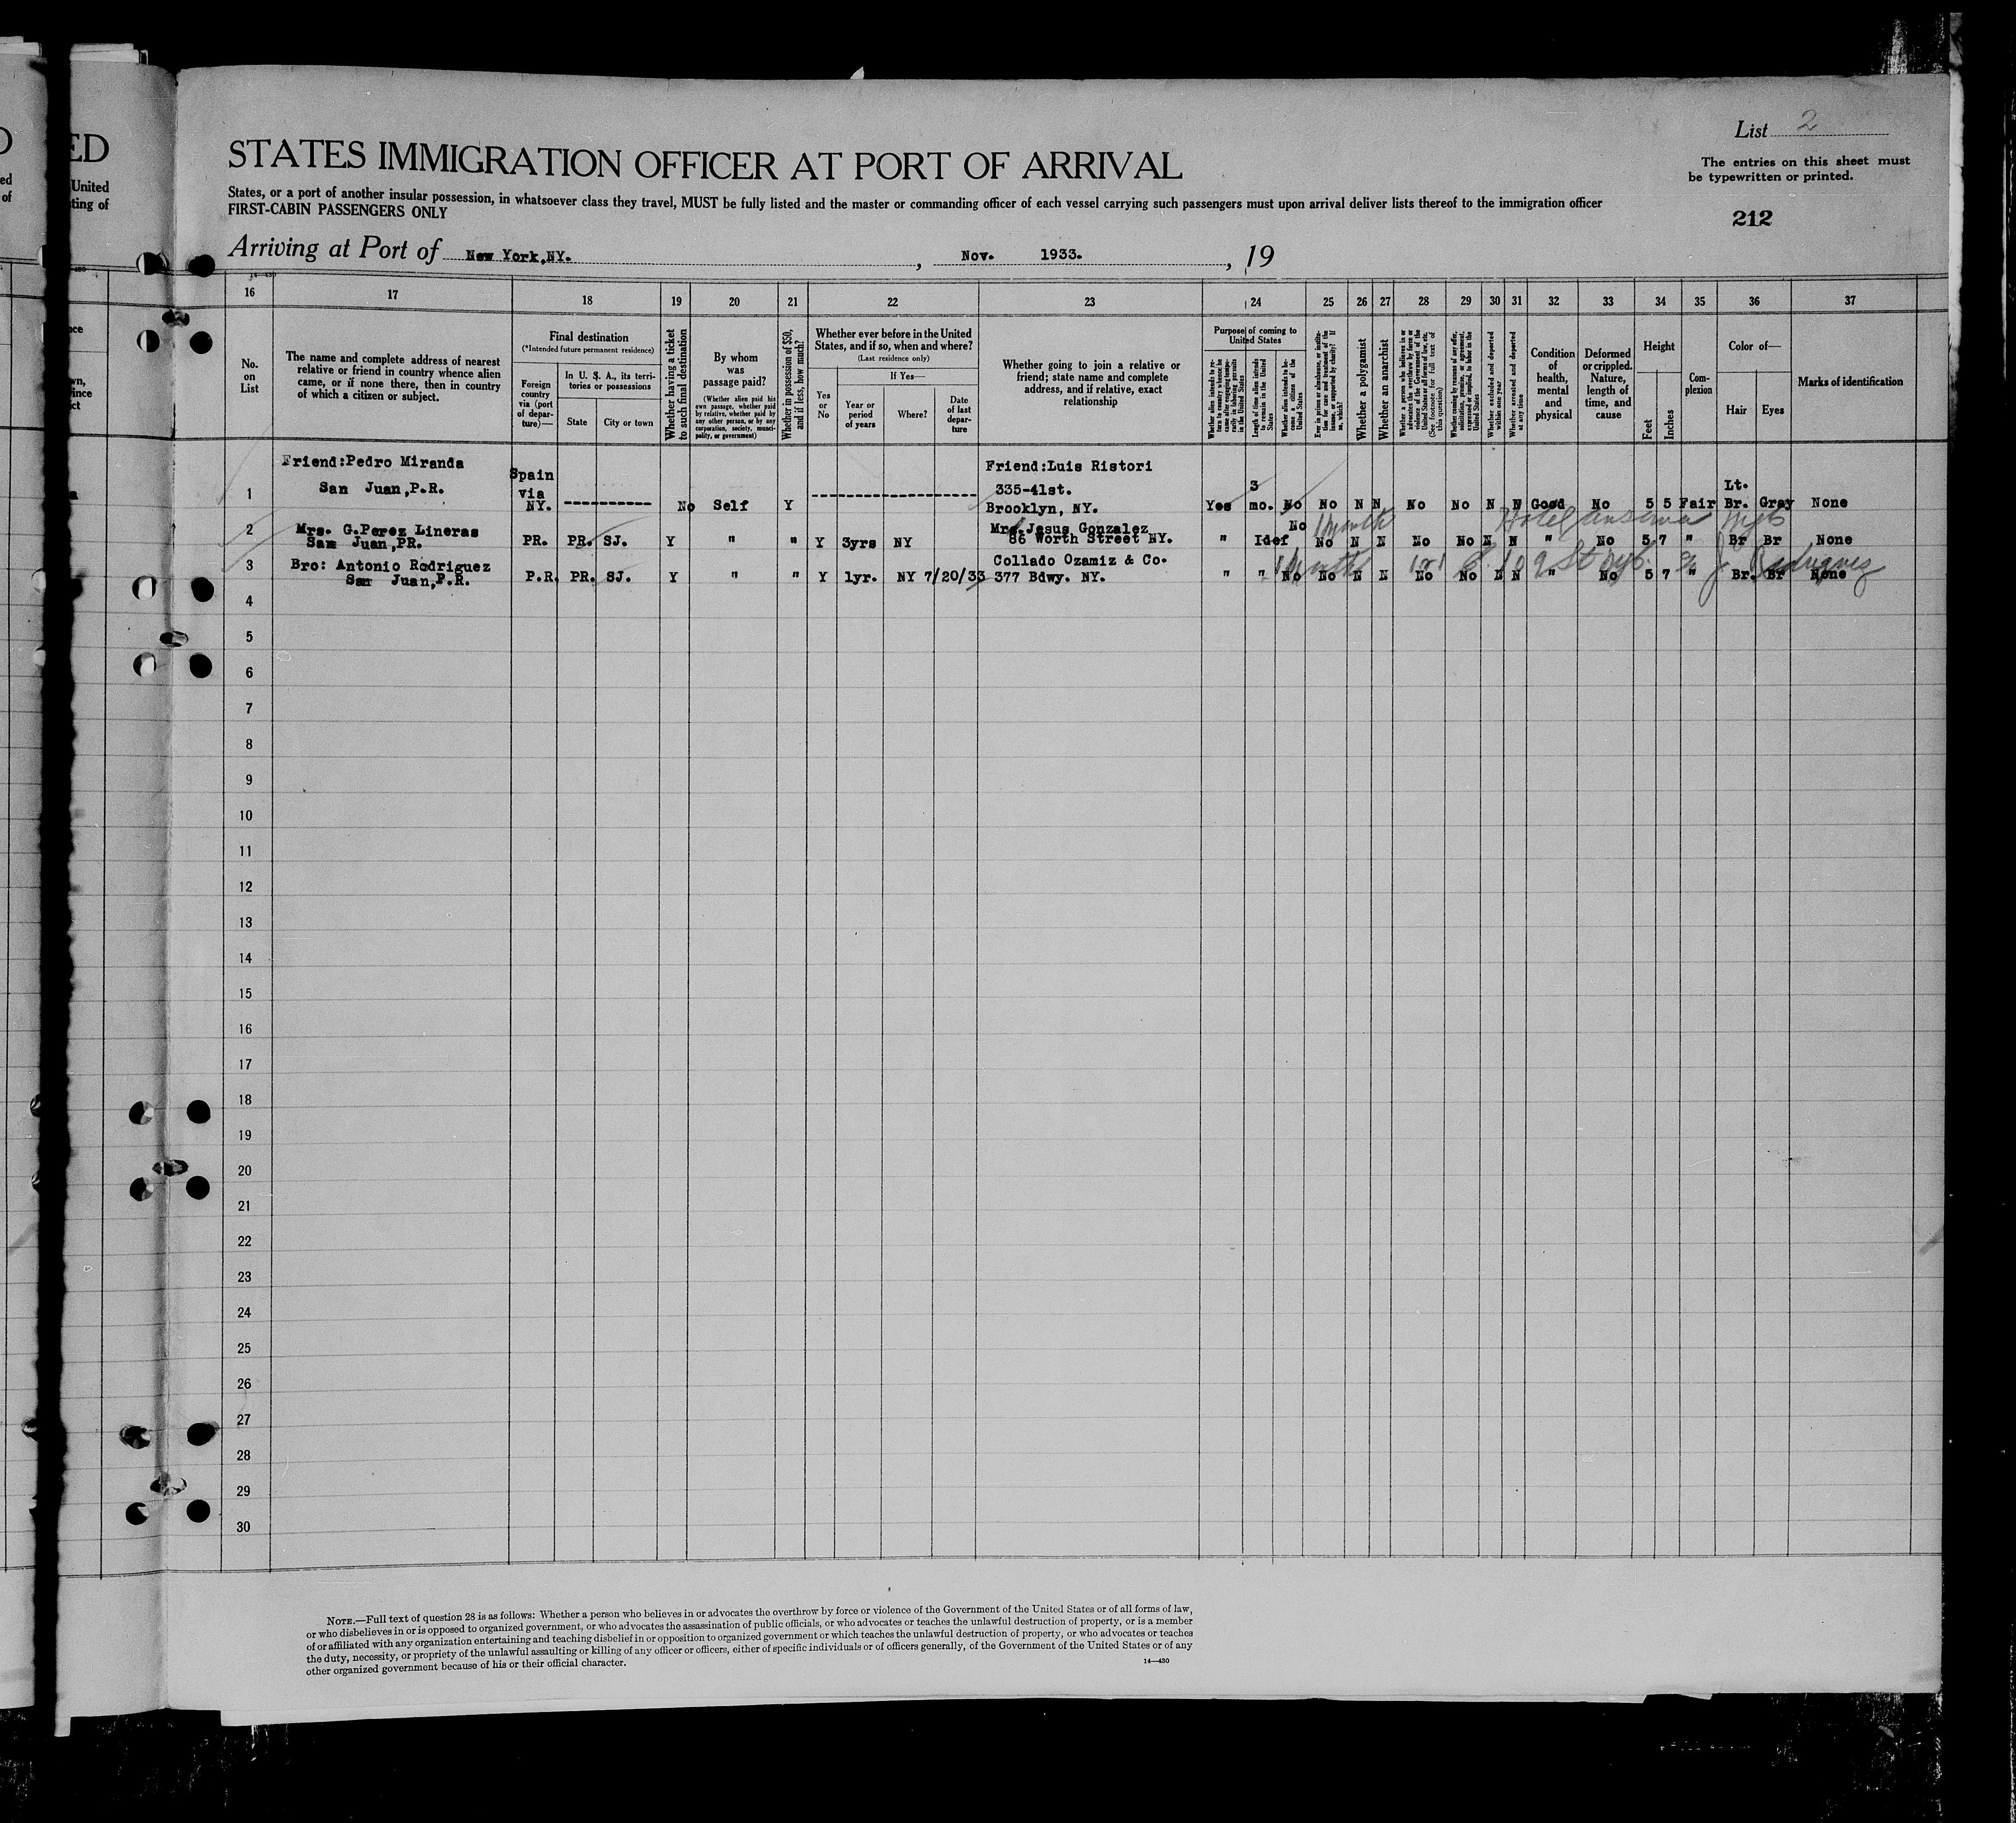 D
ED
ed
of
United
ting of
List 2
The entries on this sheet must
be typewritten or printed.
212
STATES IMMIGRATION OFFICER AT PORT OF ARRIVAL
States, or a port of another insular possession, in whatsoever class they travel, MUST be fully listed and the master or commanding officer of each vessel carrying such passengers must upon arrival deliver lists thereof to the immigration officer
FIRST-CABIN PASSENGERS ONLY
Arriving at Port of New York,NY. , Nov. 1933. , 19
16 17 18 19 20 21 22 23 24 25 26 27 28 29 30 31 32 33 34 35 36 37
No.
on
List
The name and complete address of nearest
relative or friend in country whence alien
came, or if none there, then in country
of which a citizen or subject.
Final destination
(*Intended future permanent residence)
Foreign
country
via (port
of depar-
ture)—
In U. S. A., its terri-
tories or possessions
State City or town
Whether having a ticket
to such final destination
By whom
was
passage paid?
(Whether alien paid his
own passage, whether paid
by relative, whether paid by
any other person, or by any
corporation, society, munici-
pality, or government)
Whether in possession of $50,
and if less, how much?
Whether ever before in the United
States, and if so, when and where?
(Last residence only)
Yes
or
No
If Yes—
Year or
period
of years
Where?
Date
of last
depar-
ture
Whether going to join a relative or
friend; state name and complete
address, and if relative, exact
relationship
Purpose of coming to
United States
Whether alien intends to re-
turn to country whence he
came after engaging tempo-
rarily in laboring pursuits
in the United States
Length of time alien intends
to remain in the United
States
Whether alien intends to be-
come a citizen of the
United States
Ever in prison or almshouse, or institu-
tion for care and treatment of the
insane, or supported by charity? If
so, which?
Whether a polygamist
Whether an anarchist
Whether a person who believes in or
advocates the overthrow by force or
violence of the Government of the
United States or all forms of law, etc.
(See footnote for full text of
this question)
Whether coming by reason of any offer,
solicitation, promise, or agreement,
expressed or implied, to labor in the
United States
Whether excluded and deported
within one year
Whether arrested and deported
at any time
Condition
of
health,
mental
and
physical
Deformed
or crippled.
Nature,
length of
time, and
cause
Height
Feet
Inches
Com-
plexion
Color of—
Hair Eyes
Marks of identification
1 Friend:Pedro Miranda
San Juan,P.R.
Spain
via
NY.
No Self Y
Friend:Luis Ristori
335-41st.
Brooklyn, NY.
Yes 3 mo. No No N N No No N N Good No 5 5 Fair Lt. Br. Gray None
2 Mrs. G.Perez Lineras
San Juan,PR.
PR. PR. SJ. Y " " Y 3yrs NY
Mrs.Jesus Gonzalez
86 Worth Street NY.
" Idef No No N N No No N N " No 5 7 " Br Br None
1 month Hotel
3 Bro: Antonio Rodriguez
San Juan,P.R.
P.R. PR. SJ. Y " " Y 1yr. NY 7/20/33
Collado Ozamiz & Co.
377 Bdwy. NY.
" " No No N N No No N N " No 5 7 " Br. Br None
1 month 109 St Rodriguez
4
5
6
7
8
9
10
11
12
13
14
15
16
17
18
19
20
21
22
23
24
25
26
27
28
29
30
NOTE.—Full text of question 28 is as follows: Whether a person who believes in or advocates the overthrow by force or violence of the Government of the United States or of all forms of law,
or who disbelieves in or is opposed to organized government, or who advocates the assassination of public officials, or who advocates or teaches the unlawful destruction of property, or is a member
of or affiliated with any organization entertaining and teaching disbelief in or opposition to organized government or which teaches the unlawful destruction of property, or who advocates or teaches
the duty, necessity, or propriety of the unlawful assaulting or killing of any officer or officers, either of specific individuals or of officers generally, of the Government of the United States or of any
other organized government because of his or their official character.
14—430